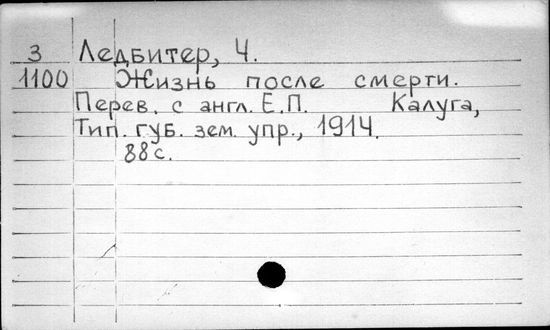 З Ледбитер, Ч.
1100 Жизнь после смерти.
Перев. с англ. Е.П. Калуга,
Тип. губ. зем. упр., 1914.
88 с.